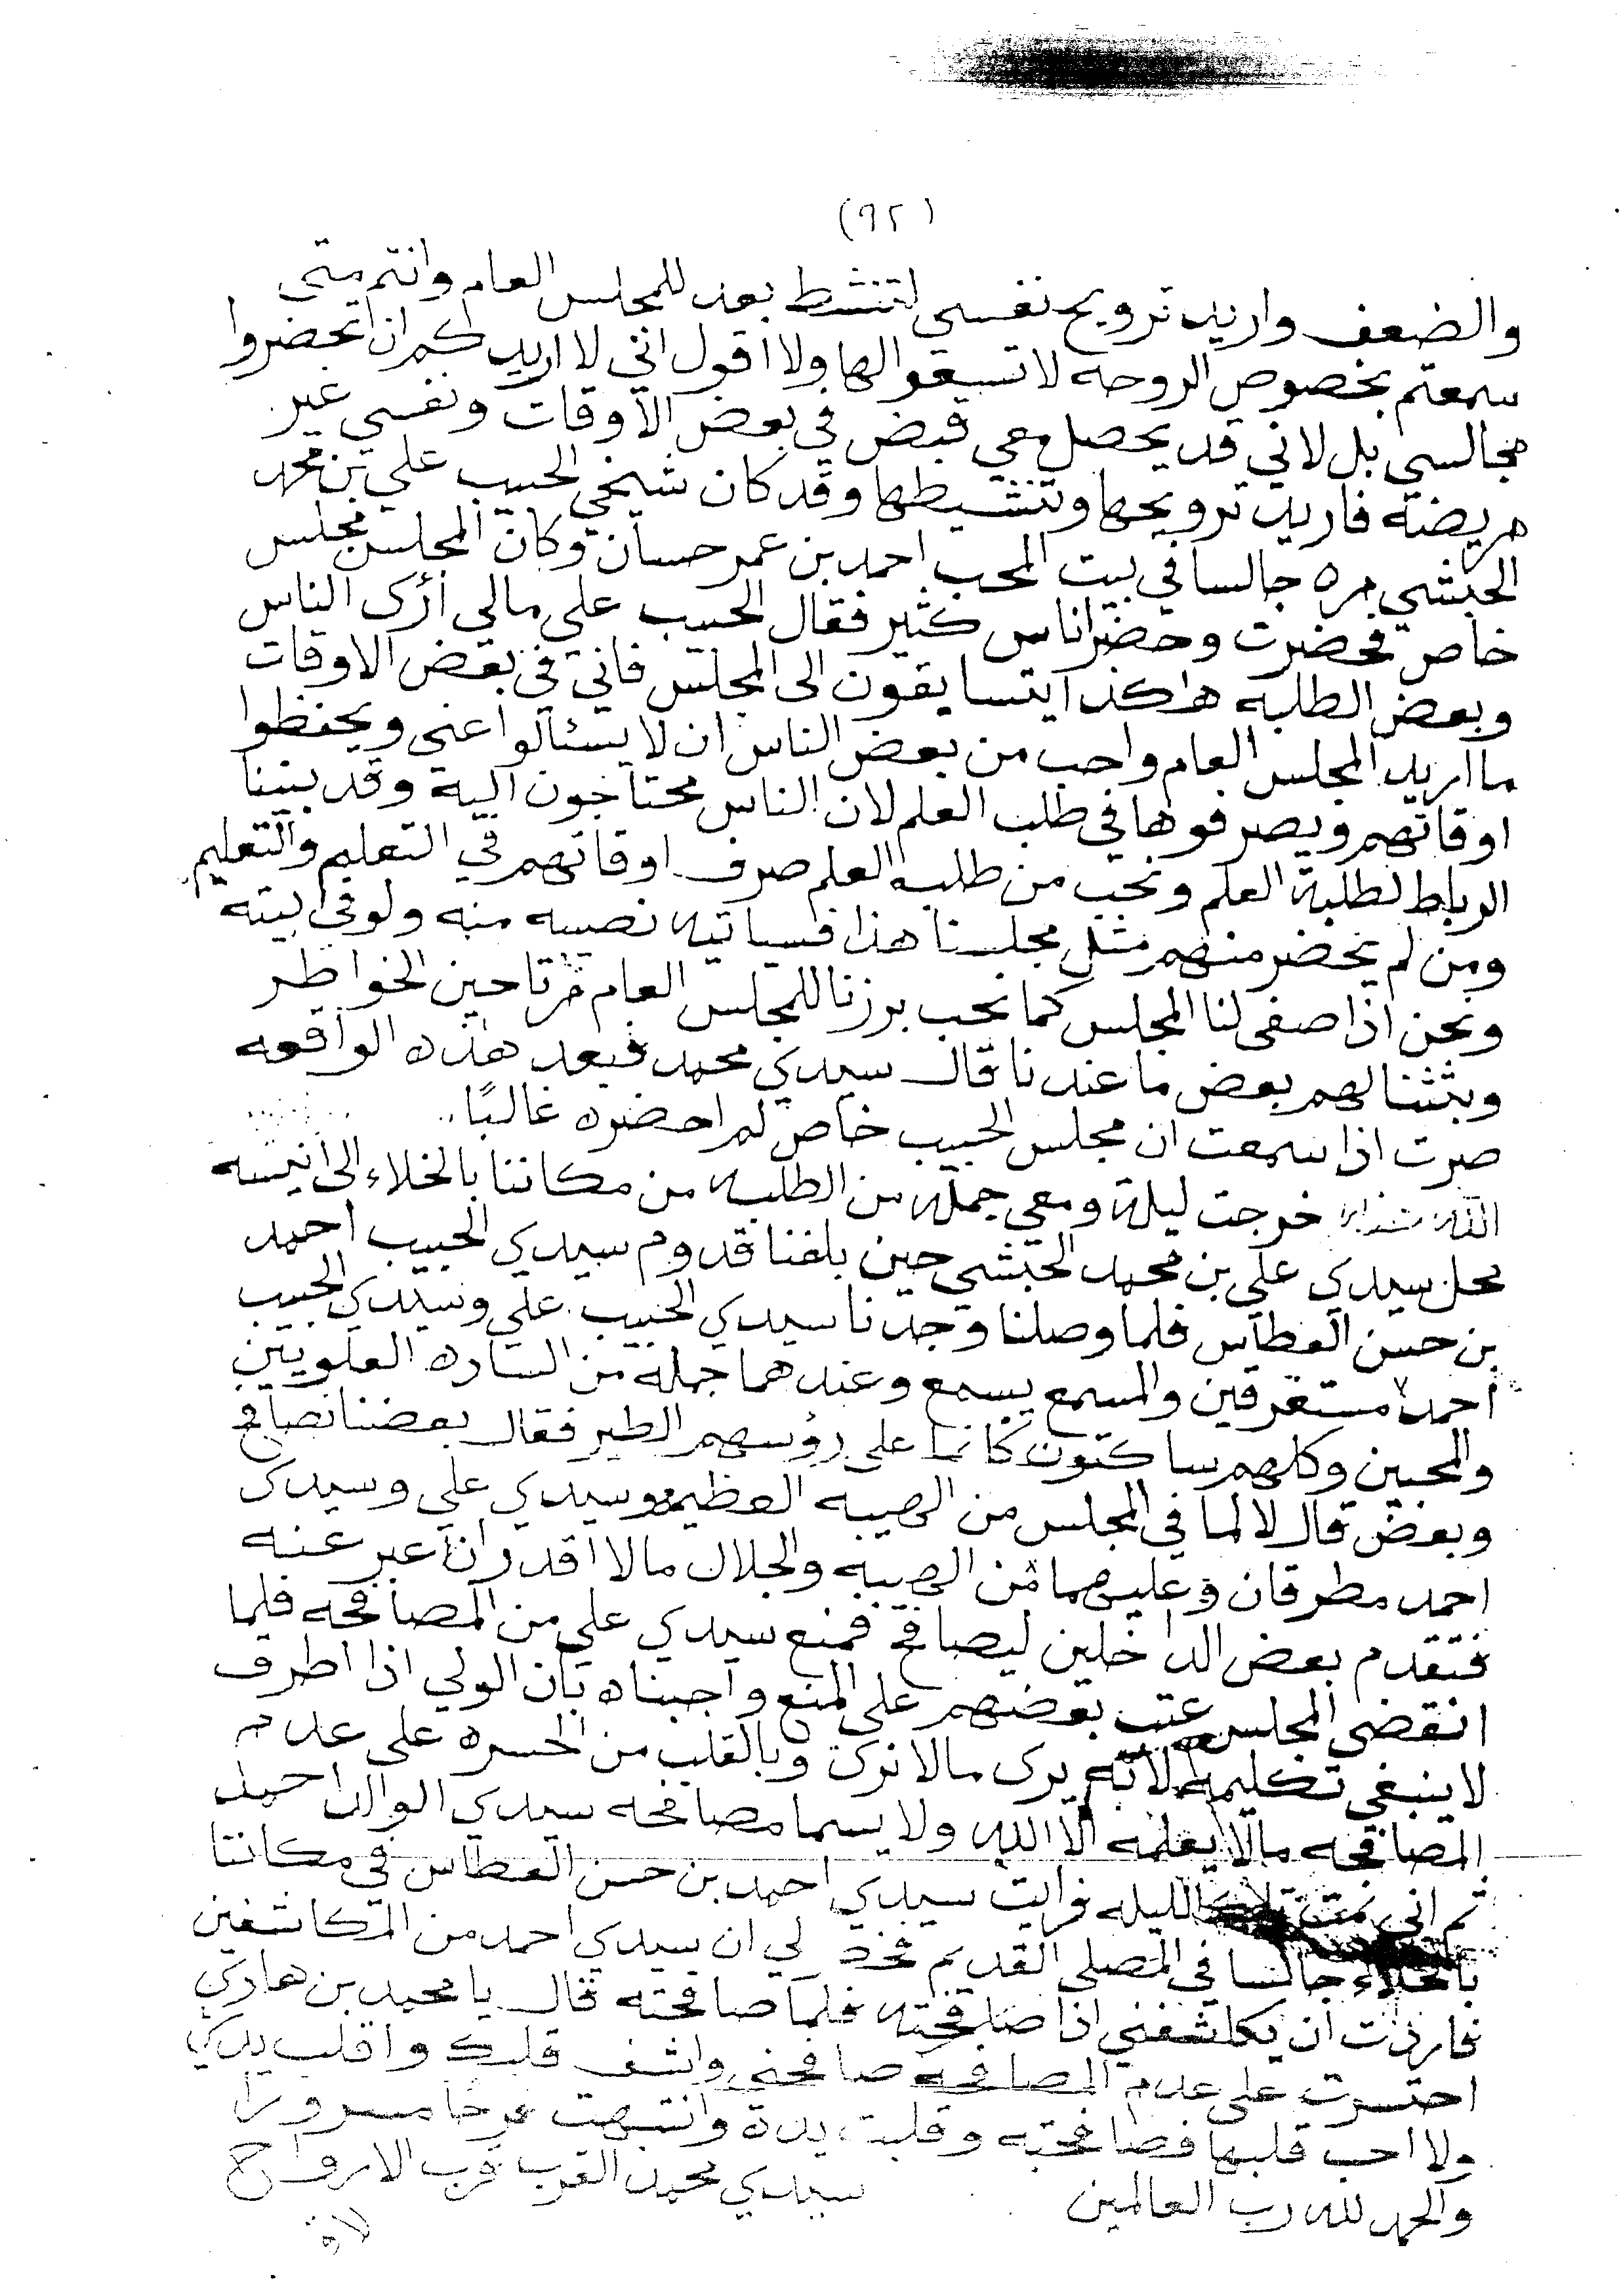 (٩٢)
والضعف واريد ترويح نفسي لتنشط بعد للمجلس العام وانتم متى
سمعتم بخصوص الروحه لا تسبقوا لها ولا اقول اني لا اريدكم ان تحضروا
مجالسي بل لاني قد يحصل معي قبض في بعض الاوقات ونفسي غير
مريضة فاريد ترويحها وتنشيطها وقد كان شيخي الحبيب علي بن محمد
الحبشي مره جالسا في بيت المحب احمد بن عمر حسان وكان المجلس مجلس
خاص فحضرت وحضر اناس كثير فقال الحبيب علي مالي أرى الناس
وبعض الطلبه هاكذا يتسابقون الى المجلس فاني في بعض الاوقات
ما اريد المجلس العام واحب من بعض الناس ان لا يسئالوا عني ويحفظوا
اوقاتهم ويصرفوها في طلب العلم لان الناس محتاجون اليه وقد بنينا
الرباط لطلبة العلم ونحب من طلبه العلم صرف اوقاتهم في التعلم والتعليم
ومن لم يحضر منهم مثل مجلسنا هذا فسياتيه نصيبه منه ولو في بيته
ونحن اذا صفى لنا المجلس كما نحب برزنا للمجلس العام مرتاحين الخواطر
وبثثنا لهم بعض ما عندنا قال سيدي محمد فبعد هذه الواقعه
صرت اذا سمعت ان مجلس الحبيب خاص لم احضره غالبًا..
خرجت ليلة ومعي جملة من الطلبه من مكاننا بالخلاء الى انيسه
محل سيدي علي بن محمد الحبشي حين بلغنا قدوم سيدي الحبيب احمد
بن حسن العطاس فلما وصلنا وجدنا سيدي الحبيب علي وسيدي الحبيب
احمد مستغرقين والمسمع يسمع وعندهما جملة من الساده العلويين
والمحبين وكلهم ساكتون كانما على رؤسهم الطير فقال بعضنا نصافح
وبعض قال لا لما في المجلس من الهيبه العظيمه وسيدي علي وسيدي
احمد مطرقان وعليهما من الهيبه والجلال مالا اقدر ان اعبر عنه
فتقدم بعض الداخلين ليصافح فمنع سيدي علي من المصافحه فلما
انقضى المجلس عتب بعضهم على المنع واجبناه بان الولي اذا اطرف
لا ينبغي تكليمه لانه يرى مالا نرى وبالقلب من الحسره على عدم
المصافحه مالا يعلمه الا الله ولا يسما مصافحه سيدي الوالد احمد
ثم اني نمت تلك الليله فرايت سيدي احمد بن حسن العطاس في مكاننا
بالخلاء جالسا في المصلى القديم لي ان سيدي احمد من المكاشفين
فاردت ان يكاشفني اذا صافحته فلما صافحته قال يا محمد بن هادي
احتسرت على عدم المصافحه صافحني واشف قلبك واقلب يدي
ولا احب قلبها فصافحته وقلبت يده وانتبهت فرحا مسرورا
والحمد لله رب العالمين سيدي محمد القرب قرب الارواح